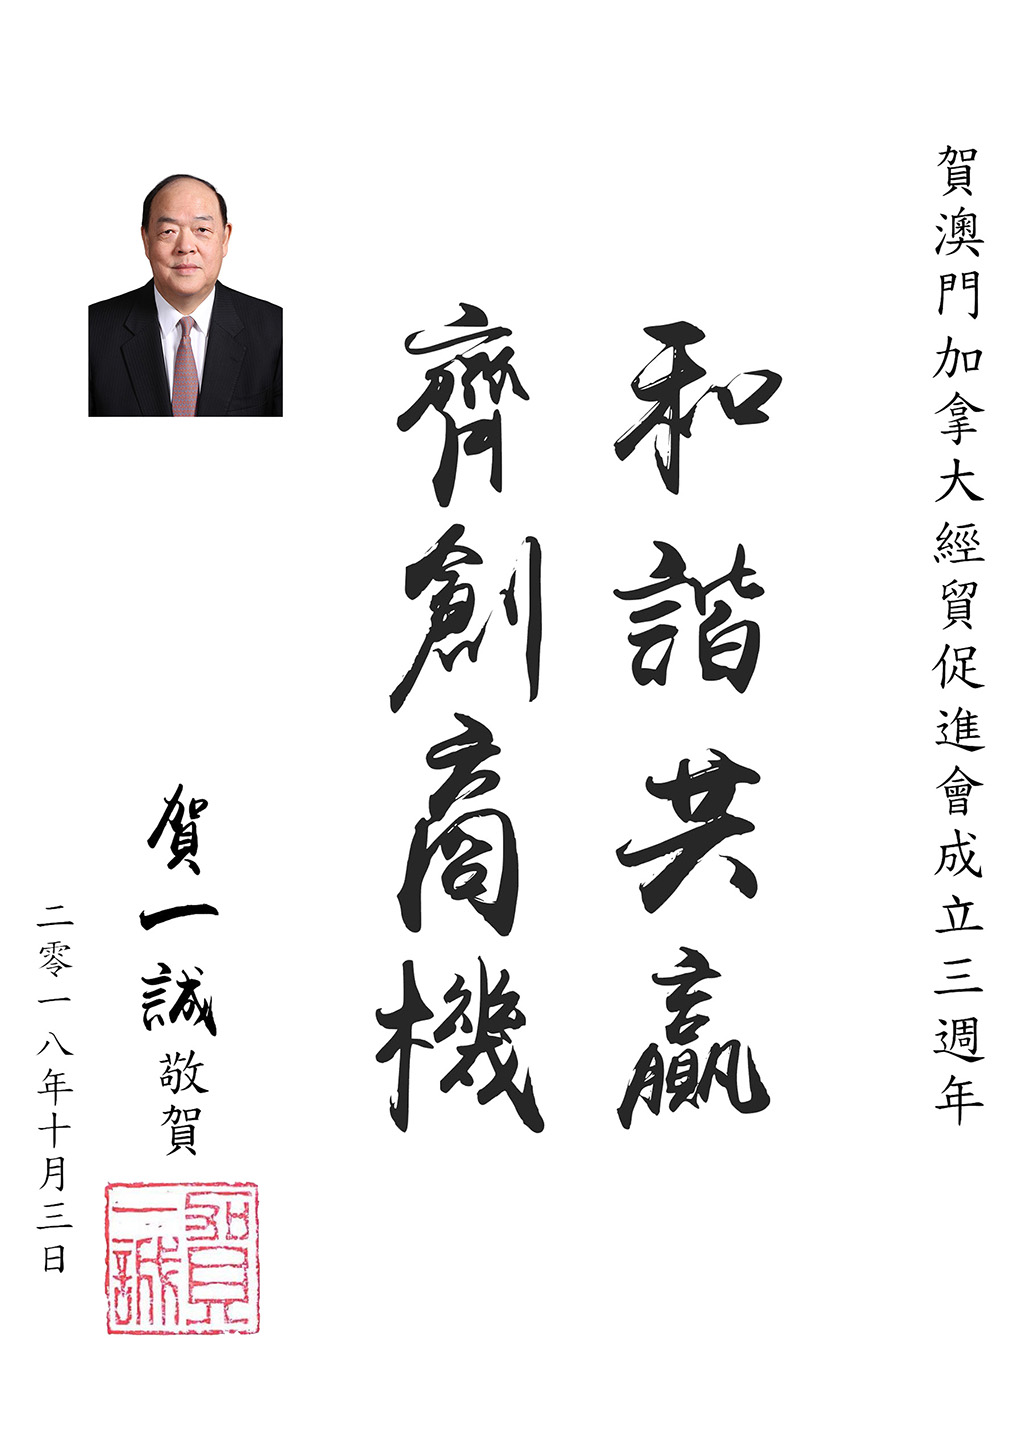 賀澳門加拿大經貿促進會成立三週年
和諧共贏
齊創商機
賀一誠敬賀
賀一誠
二零一八年十月三日